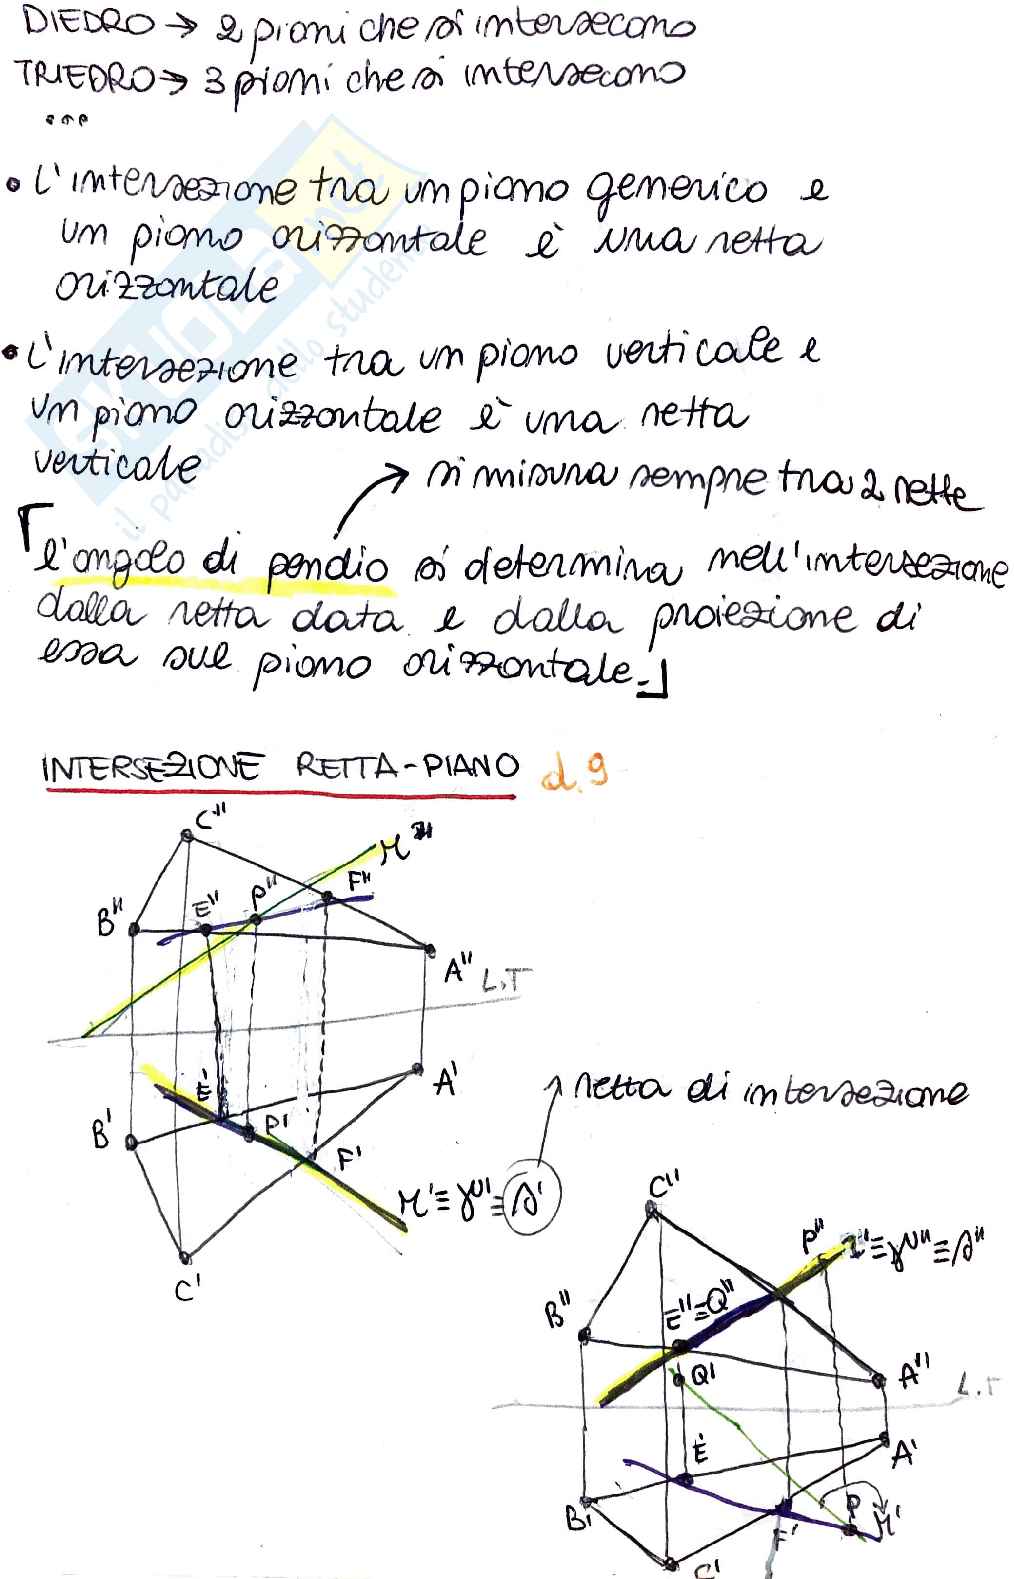 DIEDRO → 2 piani che si intersecano
TRIEDRO → 3 piani che si intersecano
...
• L'intersezione tra un piano generico e
un piano orizzontale è una retta
orizzontale
• L'intersezione tra un piano verticale e
un piano orizzontale è una retta
verticale
→ si misura sempre tra 2 rette
l'angolo di pendio si determina nell'intersezione
dalla retta data e dalla proiezione di
essa sul piano orizzontale.
INTERSEZIONE RETTA-PIANO d.9
C"
F"
P"
E"
B"
A"
L.T
E'
A'
B'
P'
F'
C'
retta di intersezione
C"
P"
B"
E"≡Q"
A"
Q'
L.T
E'
A'
B'
F'
P
C'
SKUOLA.net
il paradiso dello studente